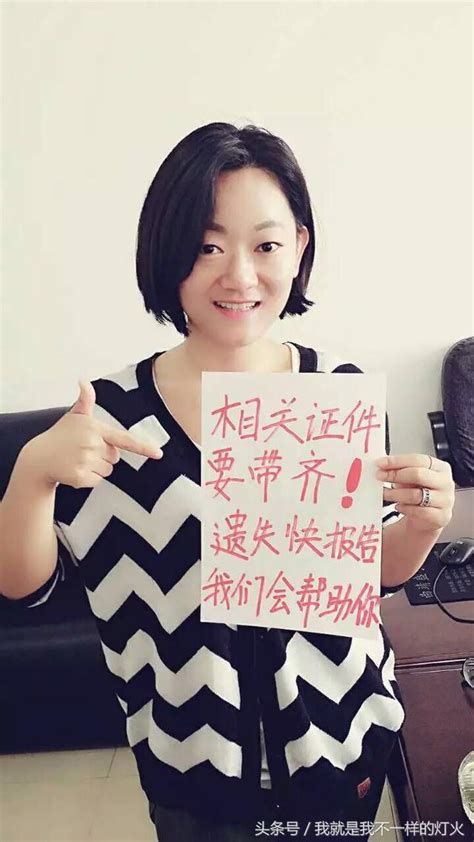 相关证件
要带齐！
遗失快报告
我们会帮助你
头条号 / 我就是我不一样的灯火